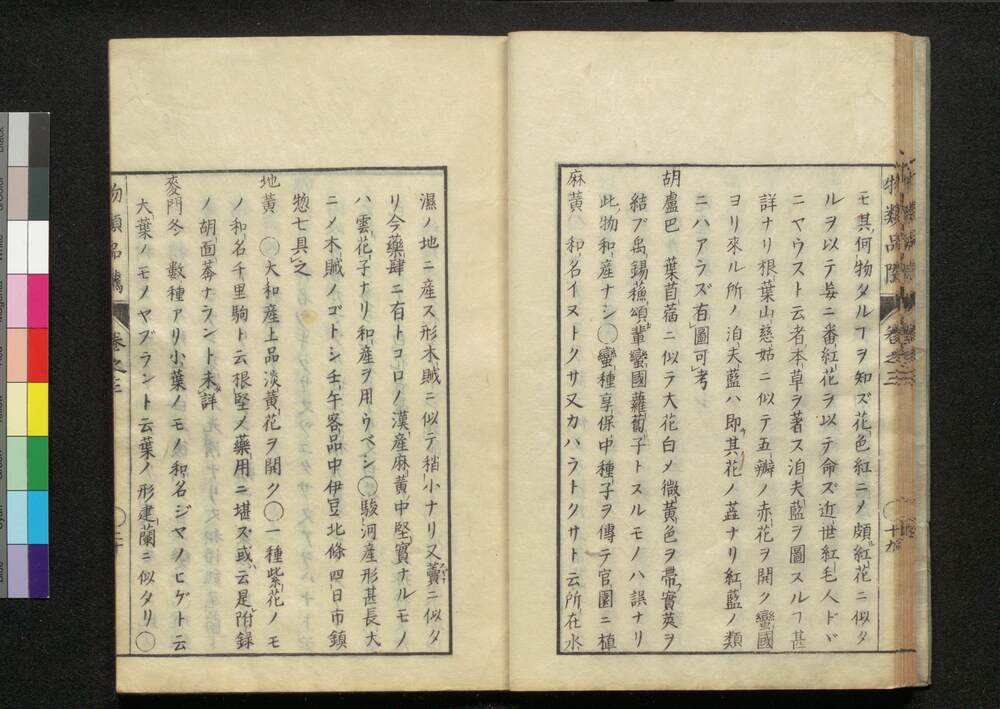 物類品隲 卷之三 十九
モ其何物タルヿヲ知ズ花色紅ニメ頗紅花ニ似タ
ルヲ以テ毎ニ番紅花ヲ以テ命ズ近世紅毛人ドヾ
ニヤウスト云者本草ヲ著ス洎夫藍ヲ圖スルヿ甚
詳ナリ根葉山慈姑ニ似テ五瓣ノ赤花ヲ開ク蠻國
ヨリ來ル所ノ泊夫藍ハ即其花ノ蕋ナリ紅藍ノ類
ニハアラズ有圖可考
胡盧巴 葉苜蓿ニ似ラ大花白メ微黃色ヲ帶實莢ヲ
結ブ禹錫蘓頌輩蠻國蘿蔔子トスルモノハ誤ナリ
此物和產ナシ〇蠻種享保中種子ヲ傳テ官園ニ植
麻黃 和名イヌトクサ又カハラトクサト云所在水
濕ノ地ニ產ス形木賊ニ似テ稍小ナリ又藚ニ似タ
リ今藥肆ニ有トコロノ漢產麻黃中堅實ナルモノ
ハ雲花子ナリ和產ヲ用ウベシ〇駿河產形甚長大
ニメ木賊ノゴトシ壬午客品中伊豆北條四日市鎮
惣七具之
地黃 〇大和產上品淡黃花ヲ開ク〇一種紫花ノモ
ノ和名千里駒ト云根堅ノ藥用ニ堪ズ或云是附録
ノ胡面莽ナラント未詳
麥門冬 數種アリ小葉ノモノ和名ジヤノヒゲト云
大葉ノモノヤブラント云葉ノ形建蘭ニ似タリ〇
物類品隲 卷之三 〇二十